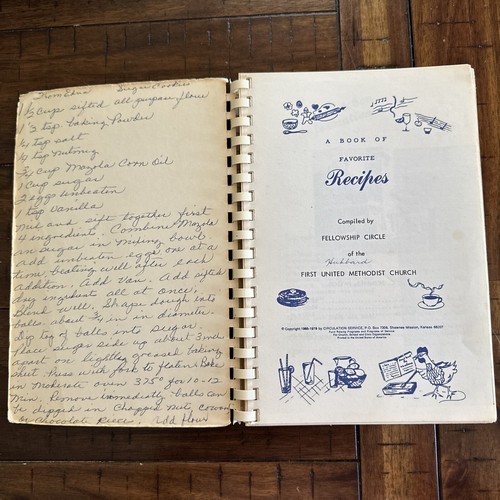 From Edna Sugar Cookies
Cup sifted all purpose flour
tsp. Baking Powder
tsp salt
tsp Nutmeg
Cup Mazola Corn Oil
1 Cup sugar
2 eggs unbeaten
1 tsp Vanilla
and sift together first
4 ingredients. Combine Mazola
and sugar in mixing bowl
add unbeaten eggs one at a
time beating well after each
addition. Add Van. Add sifted
dry ingredient all at once,
Blend well. Shape dough into
balls about 3/4 in in diameter.
Dip top of balls into sugar.
Place sugar side up about 3 inches
apart on lightly greased baking
sheet. Press with fork to flatten. Bake
in moderate oven 375° for 10-12
Min. Remove immediately. balls can
be dipped in Chopped Nut,
or chocolate pieces. add flour
A BOOK OF
FAVORITE
Recipes
Compiled by
FELLOWSHIP CIRCLE
of the
Hubbard
FIRST UNITED METHODIST CHURCH
© Copyright 1968-1979 by CIRCULATION SERVICE, P.O. Box 7306, Shawnee Mission, Kansas 66207
Fund Raising Programs and Programs of Service
For Church, School and Civic Organizations
Printed in the United States of America